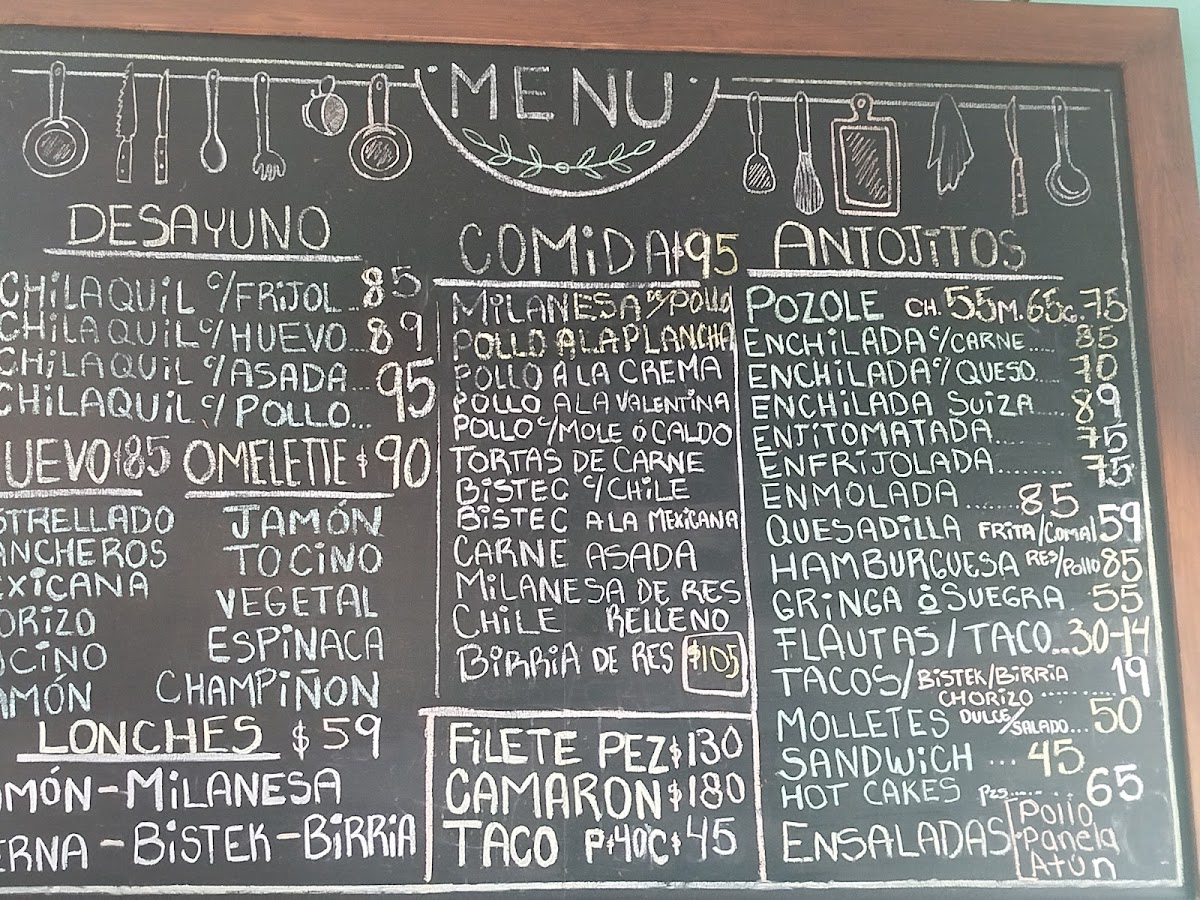 MENU
DESAYUNO
CHILAQUIL C/FRIJOL.. 85
CHILAQUIL C/HUEVO.. 89
CHILAQUIL C/ASADA... 95
CHILAQUIL C/POLLO...
UEVO $85 OMELETTE $90
STRELLADO JAMÓN
ANCHEROS TOCINO
EXICANA VEGETAL
ORIZO ESPINACA
OCINO CHAMPIÑON
AMÓN
LONCHES $59
MÓN-MILANESA
ERNA-BISTEK-BIRRIA
COMIDA $95
MILANESA D/POLLO
POLLO A LA PLANCHA
POLLO A LA CREMA
POLLO A LA VALENTINA
POLLO C/MOLE Ó CALDO
TORTAS DE CARNE
BISTEC C/CHILE
BISTEC A LA MEXICANA
CARNE ASADA
MILANESA DE RES
CHILE RELLENO
BIRRIA DE RES $105
FILETE PEZ $130
CAMARON $180
TACO P$40 C$45
ANTOJITOS
POZOLE CH.55 M.65 G.75
ENCHILADA C/CARNE..... 85
ENCHILADA C/QUESO.... 70
ENCHILADA SUIZA.... 89
ENJITOMATADA....... 75
ENFRIJOLADA........ 75
ENMOLADA ....... 85
QUESADILLA FRITA/COMAL 59
HAMBURGUESA RES/POLLO 85
GRINGA Ó SUEGRA 55
FLAUTAS/TACO..30-14
TACOS/BISTEK/BIRRIA
CHORIZO ......... 19
MOLLETES DULCE/SALADO... 50
SANDWICH ... 45
HOT CAKES PZS......... 65
ENSALADAS Pollo
Panela
Atún